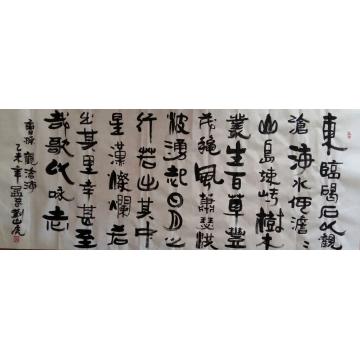 東臨碣石以觀
滄海水何澹〻
山島竦峙樹木
叢生百草豐
茂穐風蕭瑟洪
波湧起日月之
行若出其中
星漢燦爛若
出其里幸甚至
哉歌以咏志
曹操觀滄海
乙未年